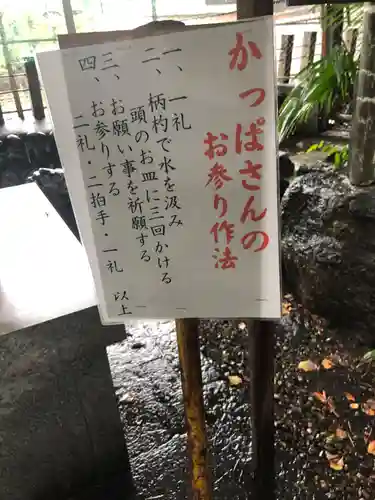 かっぱさんの
お参り作法
一、一礼
二、柄杓で水を汲み
頭のお皿に三回かける
三、お願い事を祈願する
お参りする
四、二礼・二拍手・一礼 以上